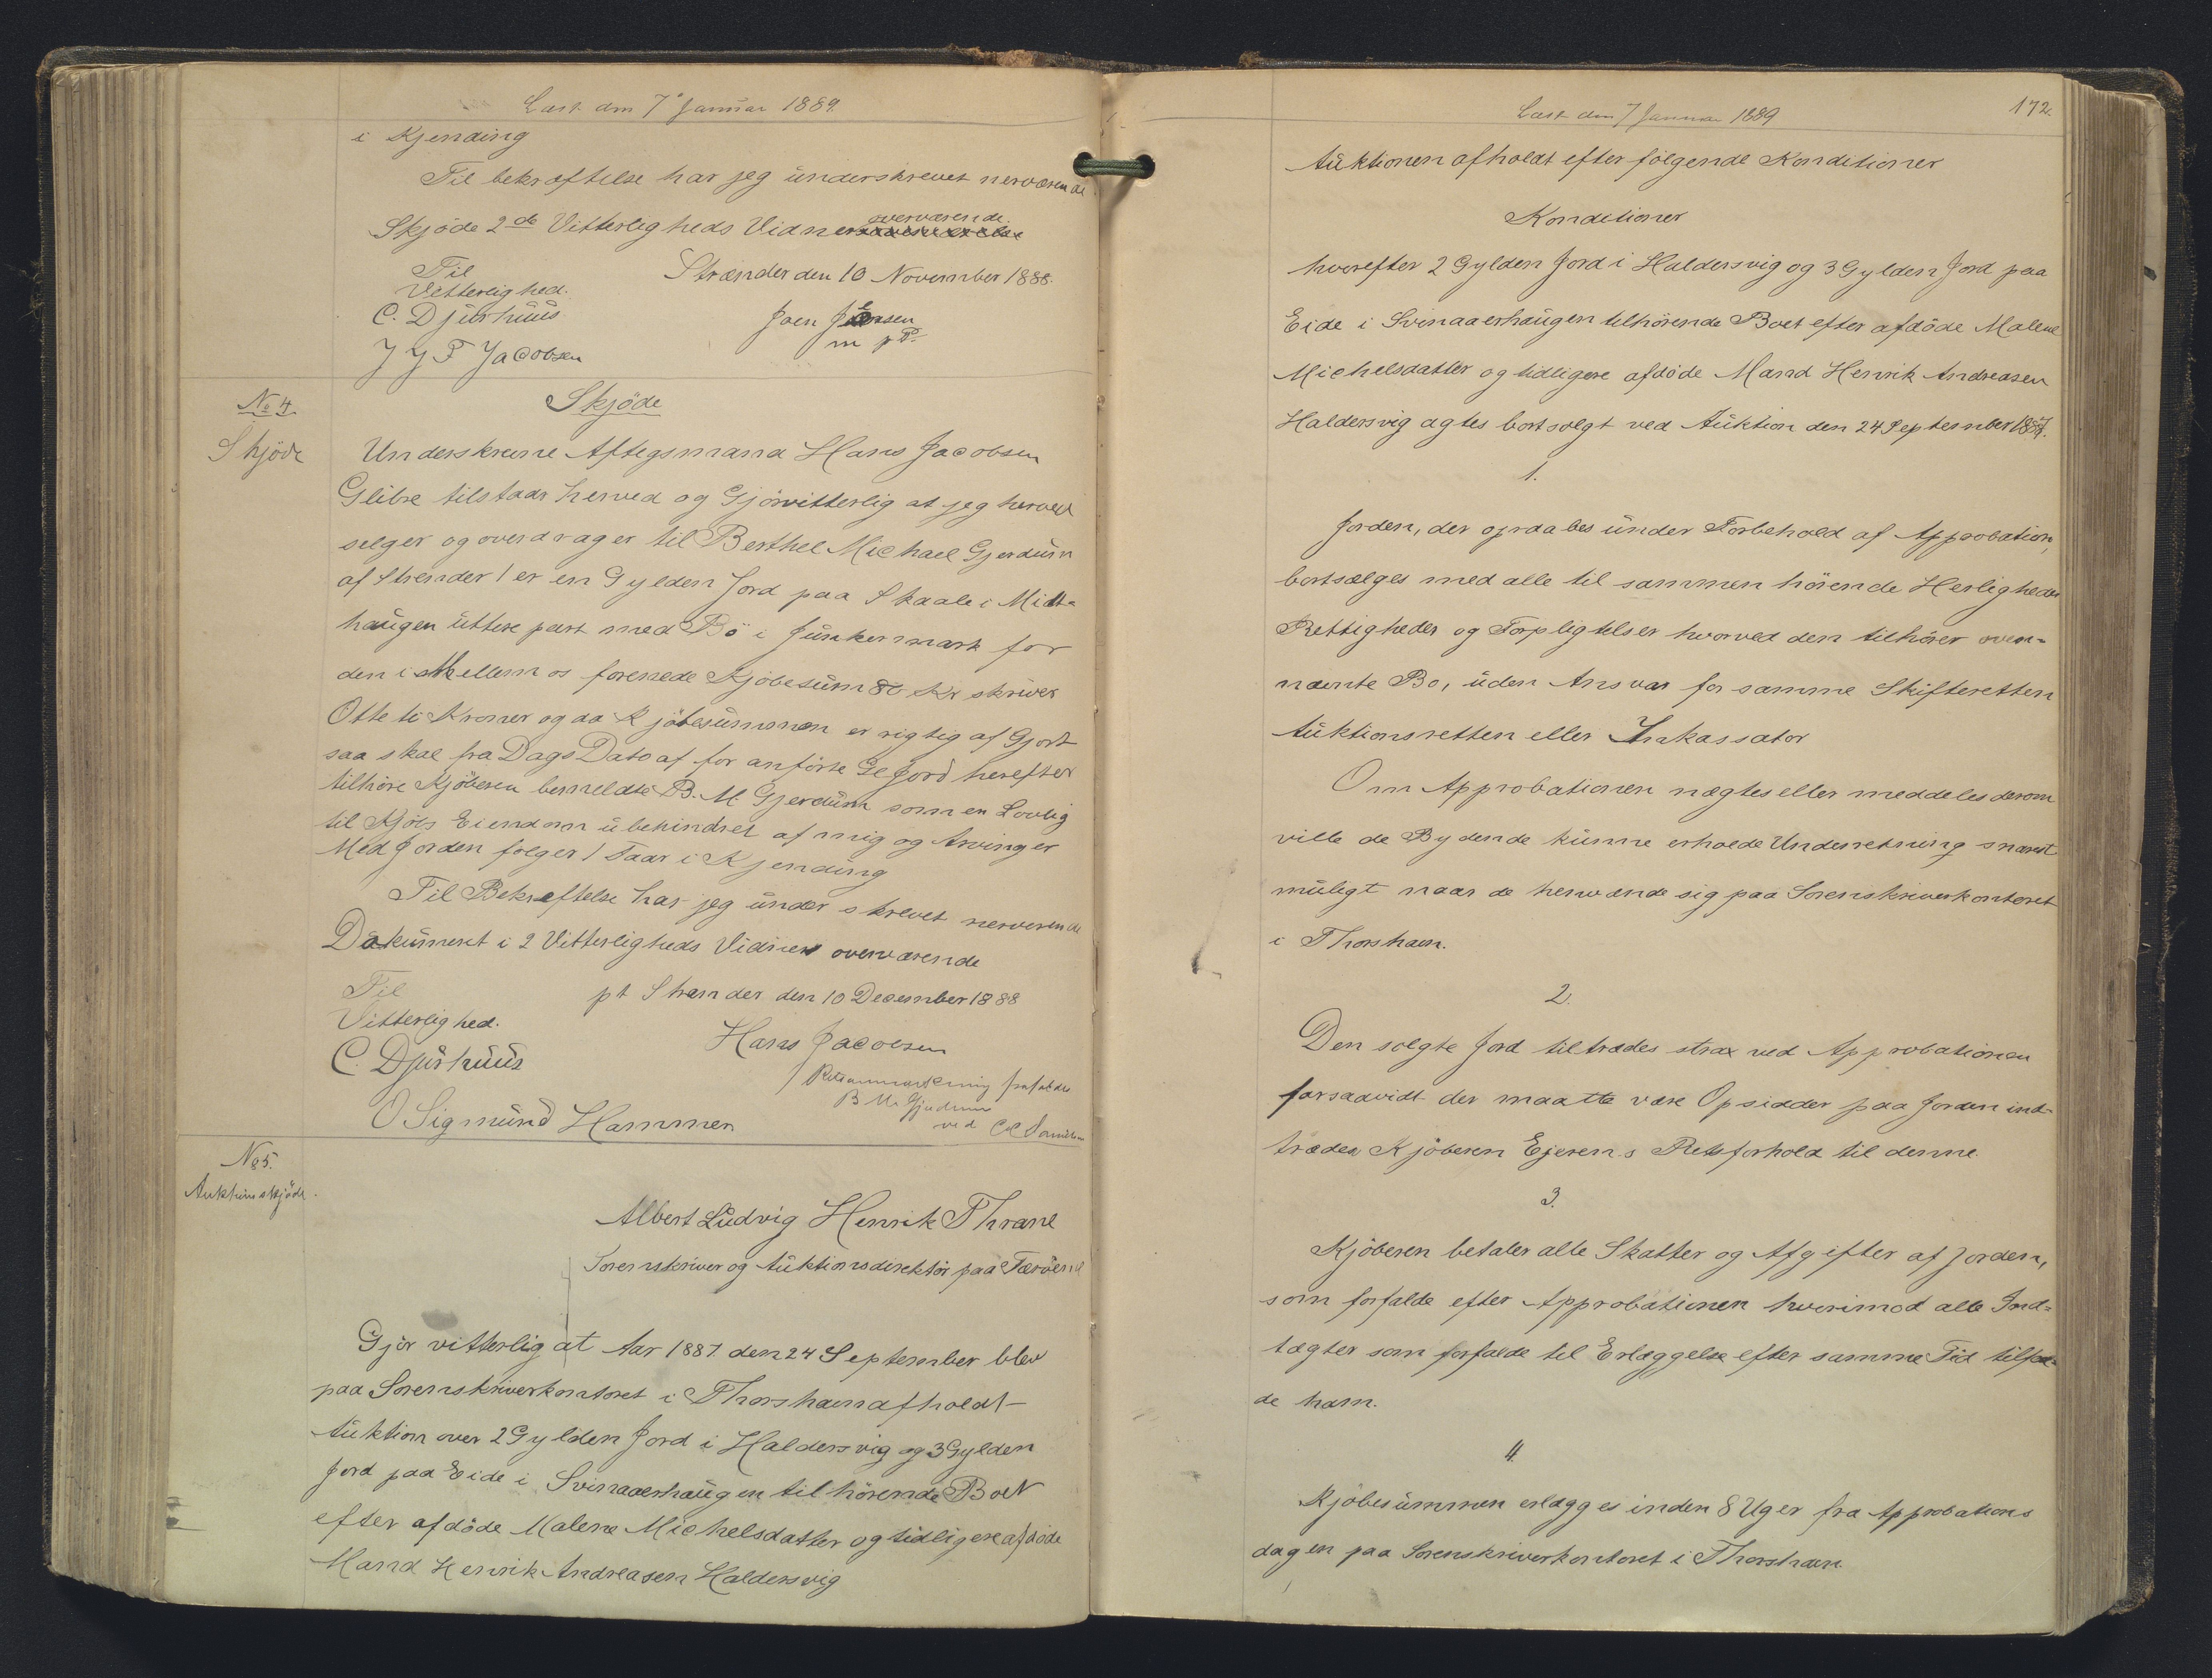 Læst den 7 Januar 1889.
i Kjending
Til bekræftelse har jeg underskrevet nerværende
Skjöde 2de Vitterligheds Vidner overværende.
Til
Vitterlighed.
Strænder den 10 November 1888.
C. Djurhuus
Joen Joensen
m p P.
J J F Jacobsen
No 4.
Skjöde
Skjöde
Underskrevne Aftegsmand Hans Jacobsen
Glibre tilstaar herved og Gjörvitterlig at jeg herved
selger og overdrager til Berthel Michael Gjerdum
af Strender 1 er en Gylden Jord paa Skaale i Midt-
haugen üttere part med Bö i Junkermark for
den i Mellem os forenede Kjöbesum 80 Kr skriver
Otte ti Kroner og da Kjöbesummen er rigtig af Gjort
saa skal fra Dags Dato af for anförte Gl Jord herefter
tilhöre Kjöberen bemeldte B. M. Gjerdum som en Lovlig
til Kjöbs Eiendom ubehindret af mig og Arvinger
Med Jorden fölger 1 Faar i Kjending
Til Bekræftelse har jeg under skrevet nerverende
Dokument i 2 Vitterligheds Vidner overværende
Til
Vitterlighed.
pt Strender den 10 December 1888
C. Djurhuus
Hans Jacobsen
O Sigmund Hammer
Retsanmærkning frafaldes
B M. Gjerdum
ved
No 5.
Auktionsskjöde.
Albert Ludvig Henrik Thrane
Sorenskriver og Auktionsdirektör paa Færöerne
Gjör vitterlig at Aar 1887 den 24 September blev
paa Sorenskriverkontoret i Thorshavn afholdt
Auktion over 2 Gylden Jord i Haldersvig og 3 Gylden
Jord paa Eide i Svinaaerhaugen tilhörende Boet
efter afdöde Malene Michelsdatter og tidligere afdöde
Mand Henrik Andreasen Haldersvig
Læst den 7 Januar 1889
172.
Auktionen afholdt efter fölgende Konditioner
Konditioner
hvorefter 2 Gylden Jord i Haldersvig og 3 Gylden Jord paa
Eide i Svinaaerhaugen tilhörende Boet efter afdöde Malene
Michelsdatter og tidligere afdöde Mand Henrik Andreasen
Haldersvig agtes bortsolgt ved Auktion den 24 September 1887.
1.
Jorden, der opraabes under Forbehold af Approbation,
bortsælges med alle til sammen hörende Herligheder
Rettigheder og Forpligtelser hvorved den tilhörer oven-
nævnte Bo, uden Ansvar for samme Skifteretten
Auktionsretten eller Inkassator
Om Approbationen nægtes eller meddeles derom
ville de Bydende kunne erholde Underretning snarest
muligt naar de henvende sig paa Sorenskriverkontoret
i Thorshavn.
2.
Den solgte Jord tiltrædes strax ved Approbationen
forsaavidt der maatte være Opsidder paa Jorden ind-
træder Kjöberen Ejerens Retsforhold til denne
3.
Kjöberen betaler alle Skatter og Afgifter af Jorden,
som forfalde efter Approbationen hvorimod alle Ind-
tægter som forfalde til Erlæggelse efter samme Tid tilfal-
de ham.
4.
Kjöbesummen erlægges inden 8 Uger fra Approbations
dagen paa Sorenskriverkontoret i Thorshavn